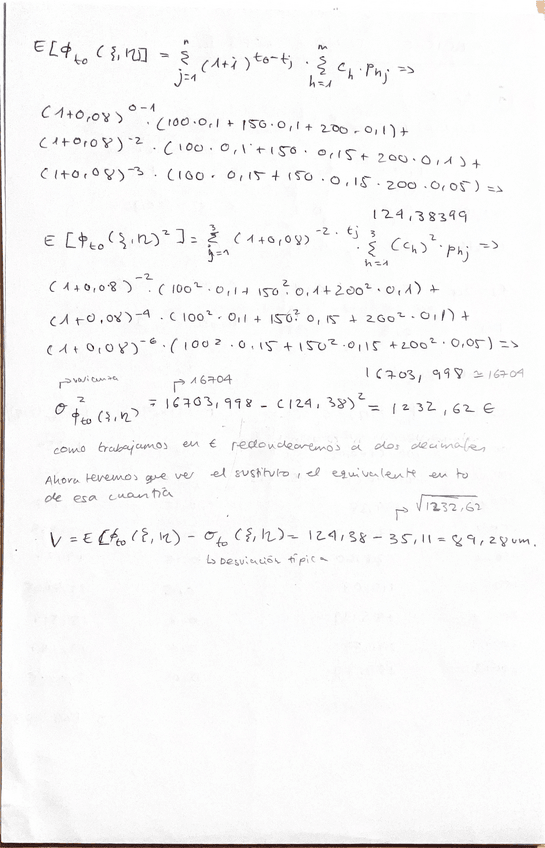 E[ϕto (ξ,η)] = n Σ j=1 (1+i)^to-tj · m Σ h=1 Ch · Phj =>
(1+0,08)^0-1 · (100·0,1 + 150·0,1 + 200·0,1) +
(1+0,08)^-2 · (100·0,1 + 150·0,15 + 200·0,1) +
(1+0,08)^-3 · (100·0,15 + 150·0,15·200·0,05) =>
124,38399
E[ϕto (ξ,η)²] = 3 Σ j=1 (1+0,08)^-2·tj · 3 Σ h=1 (Ch)² · Phj =>
(1+0,08)^-2 · (100²·0,1 + 150²·0,1 + 200²·0,1) +
(1+0,08)^-4 · (100²·0,1 + 150²·0,15 + 200²·0,1) +
(1+0,08)^-6 · (100²·0,15 + 150²·0,15 + 200²·0,05) =>
16703,998 ≃ 16704
↱ varianza ↱ 16704
σ² ϕto (ξ,η) = 16703,998 - (124,38)² = 1232,62 €
como trabajamos en € redondearemos a dos decimales
Ahora tenemos que ver el sustituto, el equivalente en to
de esa cuantía
↱ √1232,62
V = E[ϕto (ξ,η) - σto (ξ,η) = 124,38 - 35,11 = 89,28 um.
↳ Desviación típica